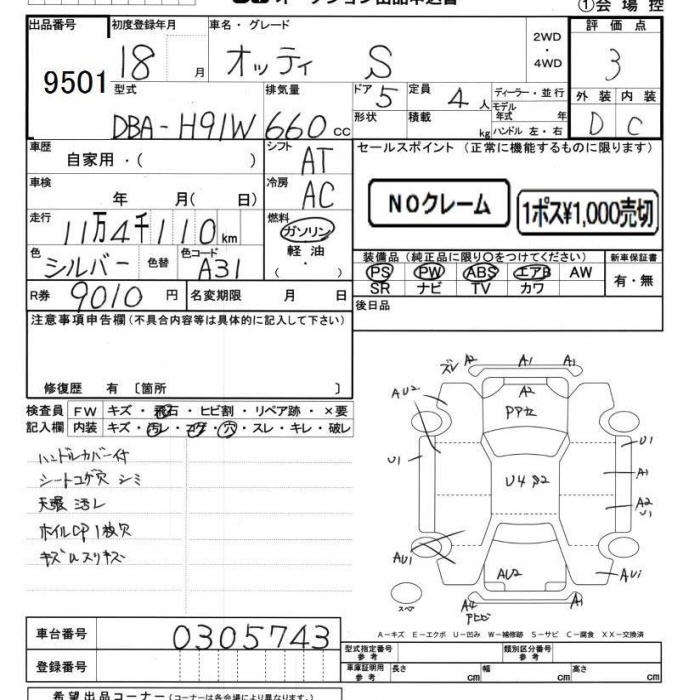 ①会場控
出品番号 初度登録年月 車名・グレード 2WD ・ 4WD 評価点
9501 18 月 オッティ S 3
型式 排気量 ドア 5 定員 4 人 ディーラー・並行 外装 内装
DBA-H91W 660 cc 形状 積載 kg モデル年式 年 ハンドル 左・右 D C
車歴 自家用・( ) シフト AT セールスポイント (正常に機能するものに限ります)
車検 年 月( 日) 冷房 AC NOクレーム 1ポス¥1,000売切
走行 11万4千110 km 燃料 ガソリン 軽油 ( ・ )
色 シルバー 色替 色コード A31
装備品 (純正品に限り○をつけてください) 新車保証書
PS PW ABS エアB AW 有・無
SR ナビ TV カワ
R券 9010 円 名変期限 月 日 後日品
注意事項申告欄(不具合内容等は具体的に記入して下さい)
修復歴 有 〔箇所 〕
検査員 FW キズ・飛石・ヒビ割・リペア跡・×要
記入欄 内装 キズ・汚レ・コゲ・穴・スレ・キレ・破レ
ハンドルカバー付
シートコゲ穴 シミ
天張 汚レ
ホイルCP1枚穴
ズレ A2 A1 A1
AU2 A2
U1 U1
A1
A2
U1
AU1 AU2 AU1
スペア A4 A1
A-キズ E-エクボ U-凹み W-補修跡 S-サビ C-腐食 XX-交換済
車台番号 0305743
型式指定番号 類別区分番号
登録番号 車庫証明用参考 長さ cm 幅 cm 高さ cm
希望出品コーナー(コーナーは各会場により異なります。)